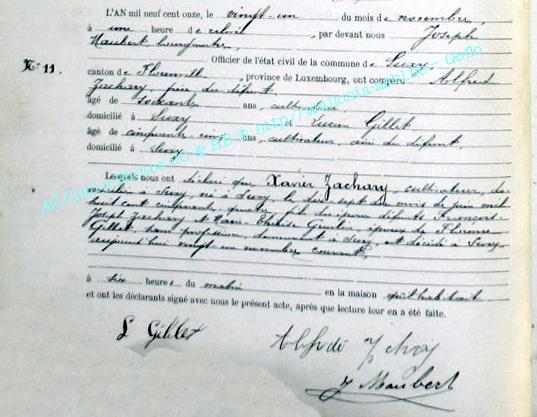 L'AN mil neuf cent onze, le vingt-un du mois de novembre,
à une heure de relevée, par devant nous Joseph
Maubert, bourgmestre,
Officier de l'état civil de la commune de Suxy,
N° 11.
canton de Florenville, province de Luxembourg, ont comparu Alfred
Zachary, frère du défunt,
âgé de soixante ans, cultivateur
domicilié à Suxy et Lucien Gillet
âgé de cinquante cinq ans, cultivateur, ami du défunt,
domicilié à Suxy
Lesquels nous ont déclaré que Xavier Zachary, cultivateur, do-
micilié à Suxy, né à Suxy le dix sept du mois de juin mil
huit cent cinquante quatre, fils des époux défunts François-
Joseph Zachary et Marie Thérèse époux de Florence
Gillet sans profession demeurant à Suxy, est décédé à Suxy,
aujourd'hui vingt un novembre courant,
à six heures du matin en la maison qu'il habitait
et ont les déclarants signé avec nous le présent acte, après que lecture leur en a été faite.
L Gillet
J Maubert